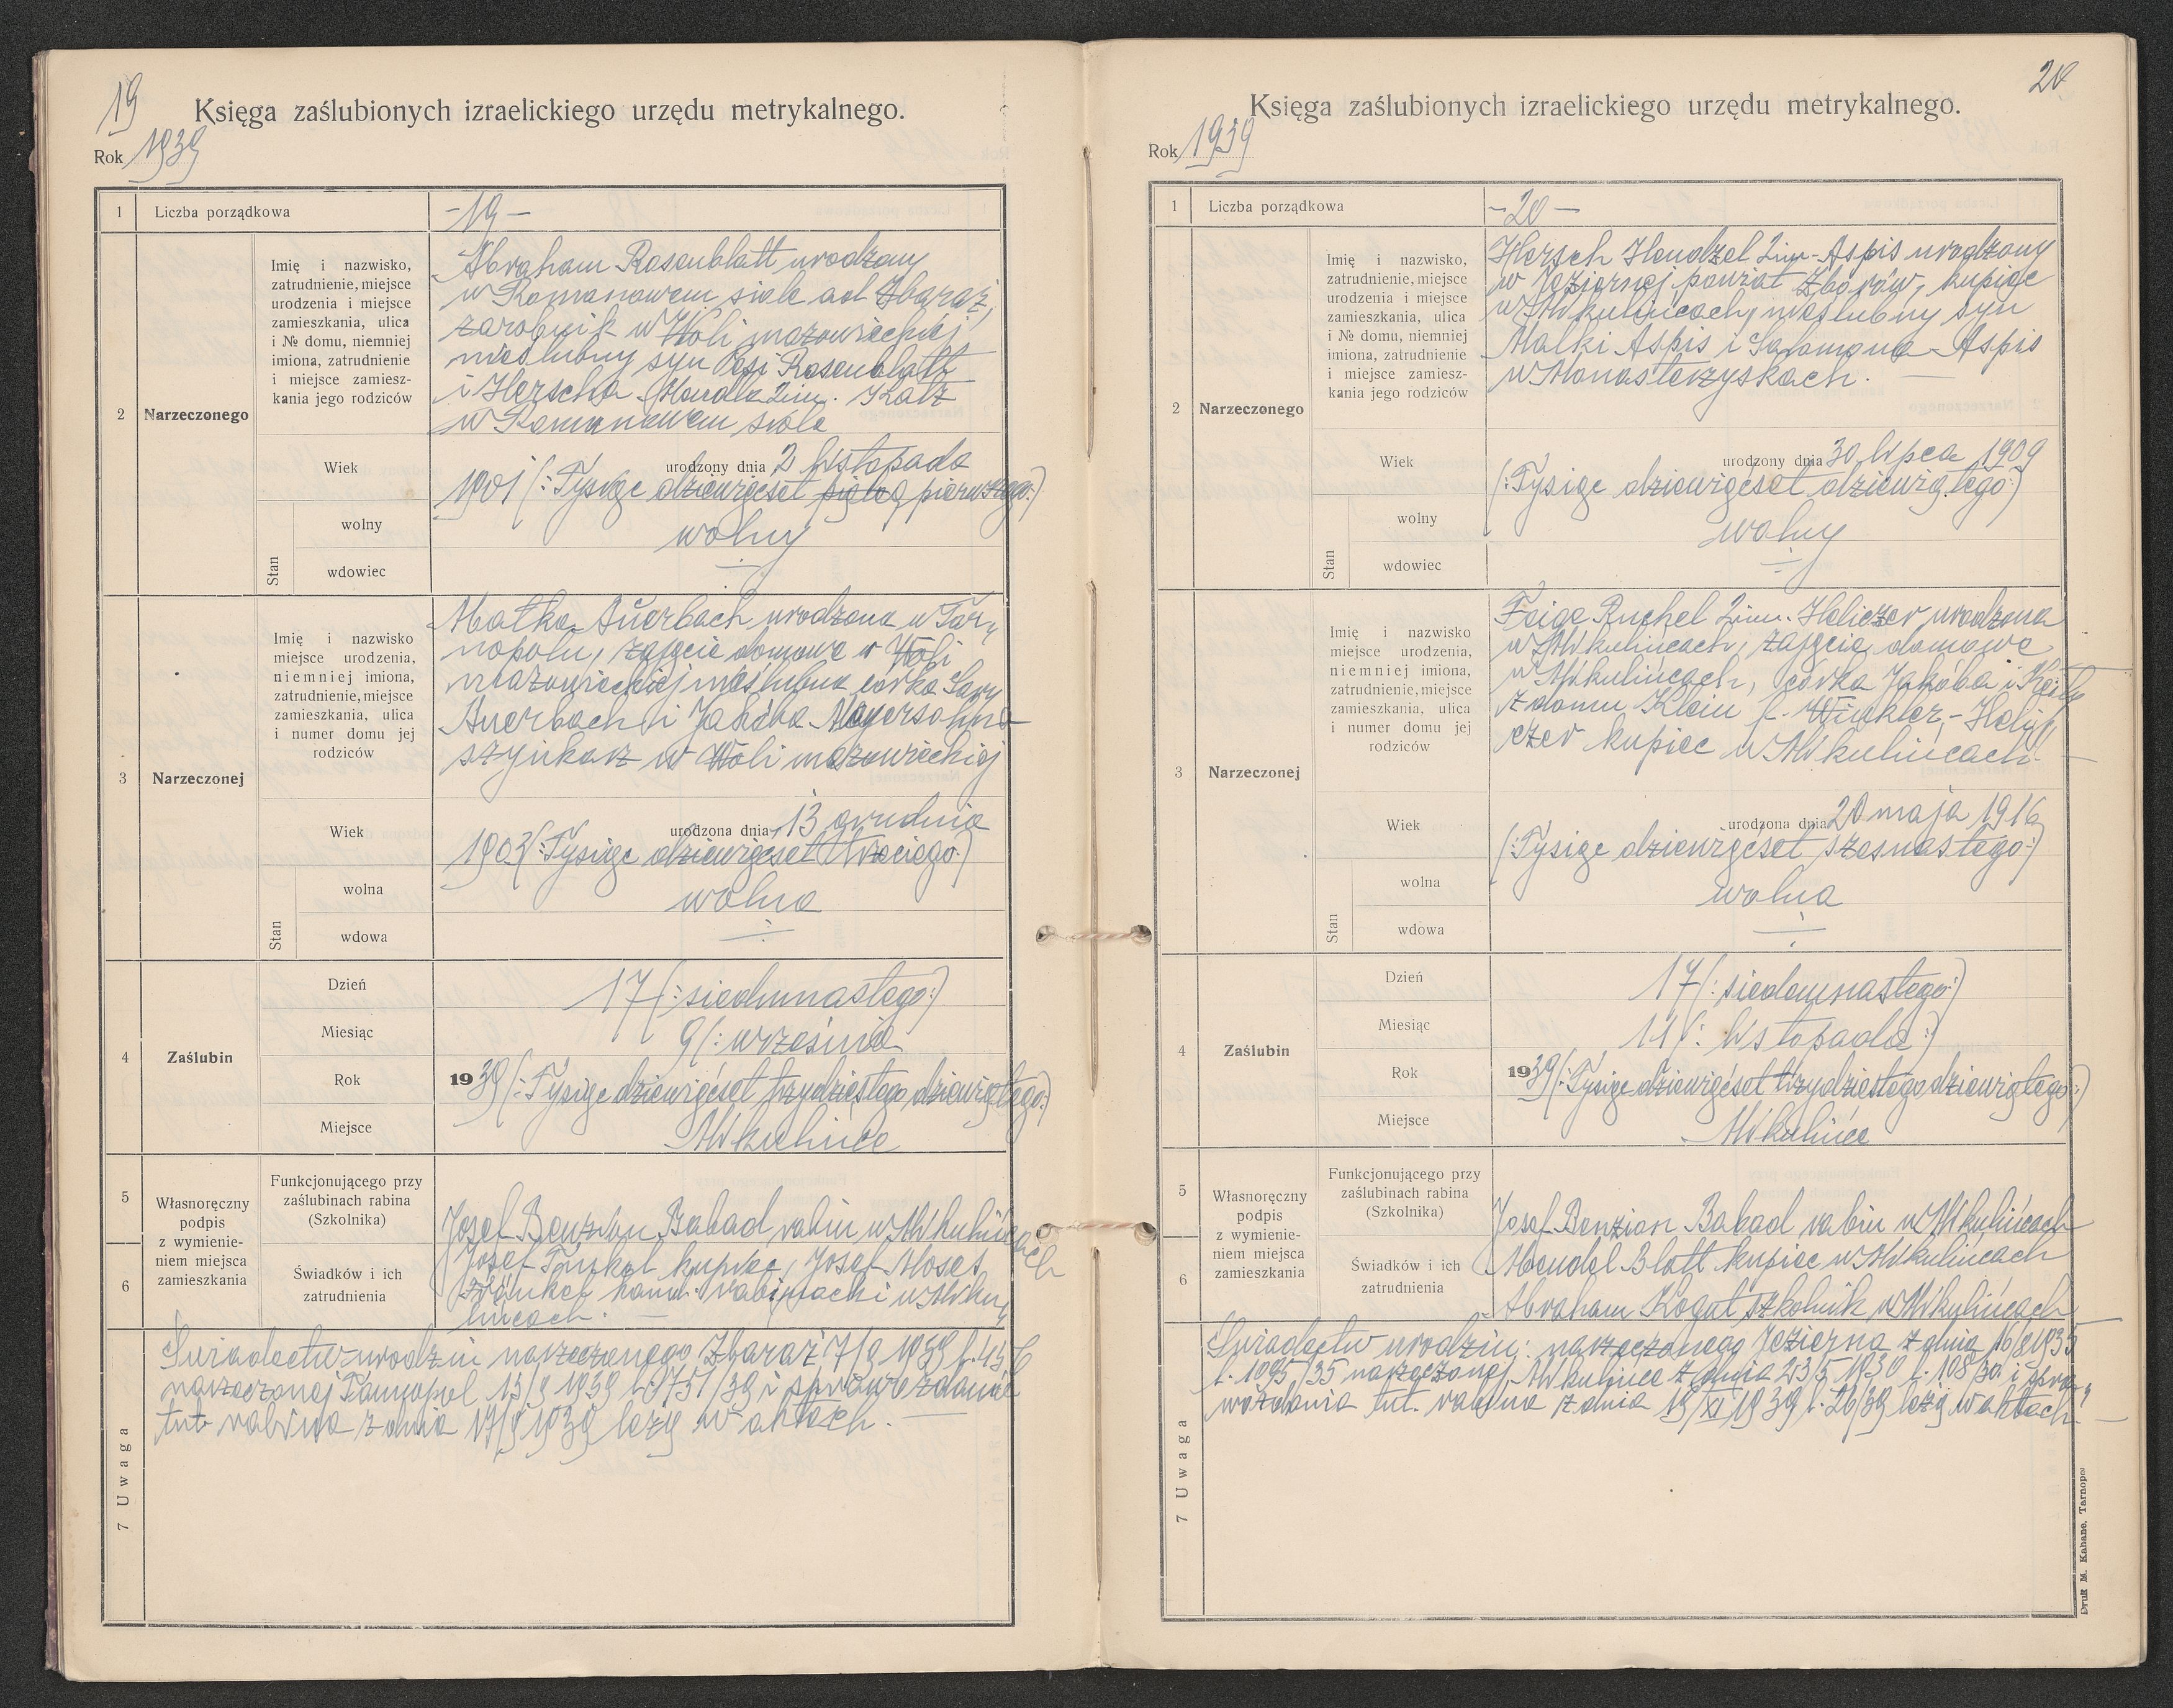 19
Księga zaślubionych izraelickiego urzędu metrykalnego.
Rok 1939
1 Liczba porządkowa -19-
2 Narzeczonego
Imię i nazwisko,
zatrudnienie, miejsce
urodzenia i miejsce
zamieszkania, ulica
i № domu, niemniej
imiona, zatrudnienie
i miejsce zamiesz-
kania jego rodziców
Abraham Rosenblatt urodzony
w Romanowem siole ad Zbaraż,
zarobnik w Woli mazowieckiej
nieślubny syn Pesi Rosenblatt
i Herscha Mendla 2im. Katz
w Romanowem siole
Wiek urodzony dnia 2 listopada
1901 (: Tysiąc dziewięćset pierwszego:)
Stan
wolny wolny
wdowiec
3 Narzeczonej
Imię i nazwisko
miejsce urodzenia,
niemniej imiona,
zatrudnienie, miejsce
zamieszkania, ulica
i numer domu jej
rodziców
Malka Auerbach urodzona w Tar„
nopolu, zajęcie domowe w Woli
mazowieckiej nieślubna córka Sary
Auerbach i Jakóba Mayersohna
szynkarz w Woli mazowieckiej
Wiek urodzona dnia 13 grudnia
1903 (: Tysiąc dziewięćset trzeciego:)
Stan
wolna wolna
wdowa
4 Zaślubin
Dzień 17 (: siedmnastego:)
Miesiąc 9 (: września
Rok 1939 (: Tysiąc dziewięćset trzydziestego dziewiątego:)
Miejsce Mikulińce
5
6
Własnoręczny
podpis
z wymienie-
niem miejsca
zamieszkania
Funkcjonującego przy
zaślubinach rabina
(Szkolnika)
Josef Benzion Babad rabin w Mikulińcach
Świadków i ich
zatrudnienia
Josef Finkel kupiec, Josef Moses
Fränkel kand. rabinacki w Miku„
lińcach.
7 Uwaga
Świadectw urodzin narzeczonego Zbaraż 7/9 1939
narzeczonej Tarnopol 13/9 1939 l: 1751/39 i sprawozdanie
tut. rabina z dnia 17/9 1939 leży w aktach.
20
Księga zaślubionych izraelickiego urzędu metrykalnego.
Rok 1939
1 Liczba porządkowa -20-
2 Narzeczonego
Imię i nazwisko,
zatrudnienie, miejsce
urodzenia i miejsce
zamieszkania, ulica
i № domu, niemniej
imiona, zatrudnienie
i miejsce zamiesz-
kania jego rodziców
Hersch Hendzel 2im. Aspis urodzony
w Jeziornej powiat Zborów, kupiec
w Mikulińcach, nieślubny syn
Malki Aspis i Salomona Aspis
w Monasterzyskach.
Wiek urodzony dnia 30 lipca 1909
(: Tysiąc dziewięćset dziewiątego:)
Stan
wolny wolny
wdowiec
3 Narzeczonej
Imię i nazwisko
miejsce urodzenia,
niemniej imiona,
zatrudnienie, miejsce
zamieszkania, ulica
i numer domu jej
rodziców
Feige Ruchel 2im. Heliczer urodzona
w Mikulińcach, zajęcie domowe
w Mikulińcach, córka Jakóba i Reisli
z domu Klein f. Winkler - Heli„
czer kupiec w Mikulińcach.
Wiek urodzona dnia 20 maja 1916
(: Tysiąc dziewięćset szesnastego:)
Stan
wolna wolna
wdowa
4 Zaślubin
Dzień 17 (: siedemnastego:)
Miesiąc 11 (: listopada:)
Rok 1939 (: Tysiąc dziewięćset trzydziestego dziewiątego:)
Miejsce Mikulińce
5
6
Własnoręczny
podpis
z wymienie-
niem miejsca
zamieszkania
Funkcjonującego przy
zaślubinach rabina
(Szkolnika)
Josef Benzion Babad rabin w Mikulińcach
Świadków i ich
zatrudnienia
Mendel Blatt kupiec w Mikulińcach
Abraham Kogut szkolnik w Mikulińcach
7 Uwaga
Świadectw urodzin: narzeczonego Jezierna z dnia 16/8 1935
l. 1095/35 narzeczonej Mikulińce z dnia 23/5 1930 l. 108/30 i spra„
wozdania tut. rabina z dnia 19/XI 1939 l. 26/39 leżą w aktach.
Druk M. Kahane, Tarnopol